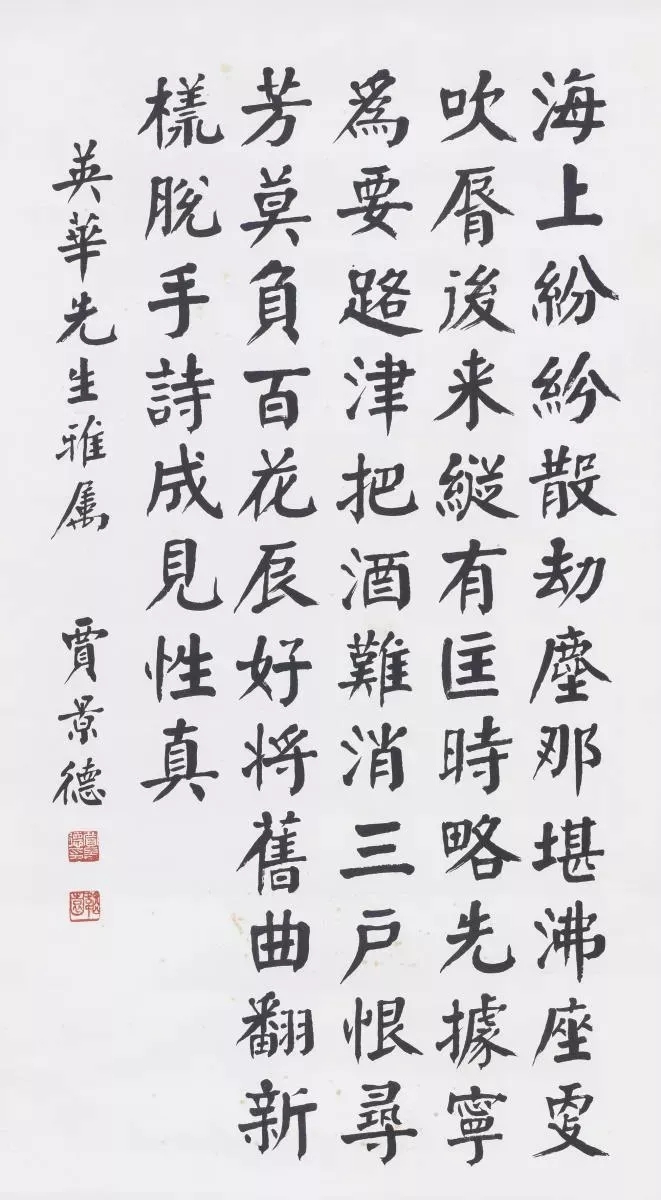 海上紛紛散劫塵那堪沸座更
吹脣後来縱有匡時略先據寧
爲要路津把酒難消三戶恨尋
芳莫負百花辰好将舊曲翻新
樣脫手詩成見性真
英華先生雅属 賈景德